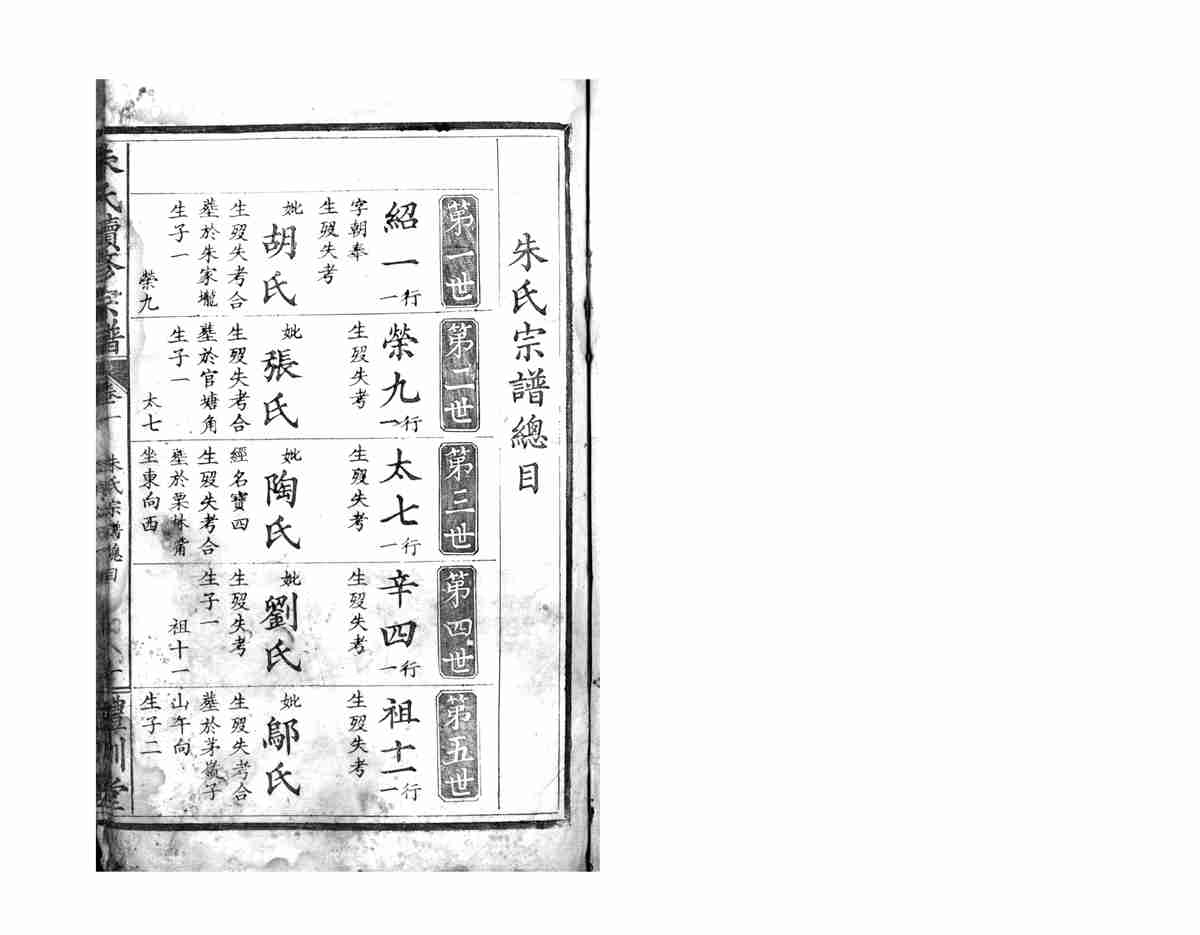 朱氏宗譜總目
第一世
紹一行一
字朝奉
生歿失考
妣胡氏
生歿失考合
塟於朱家壠
生子一
榮九
第二世
榮九行一
生歿失考
妣張氏
生歿失考合
塟於官塘角
生子一
太七
第三世
太七行一
生歿失考
妣陶氏
經名寶四
生歿失考合
塟於栗林
坐東向西
第四世
辛四行一
生歿失考
妣劉氏
生歿失考
生子一
祖十一
第五世
祖十一行一
生歿失考
妣鄔氏
生歿失考合
塟於茅嶺子
山午向
生子二
朱氏續修宗譜
卷一
朱氏宗譜總目
禮訓堂